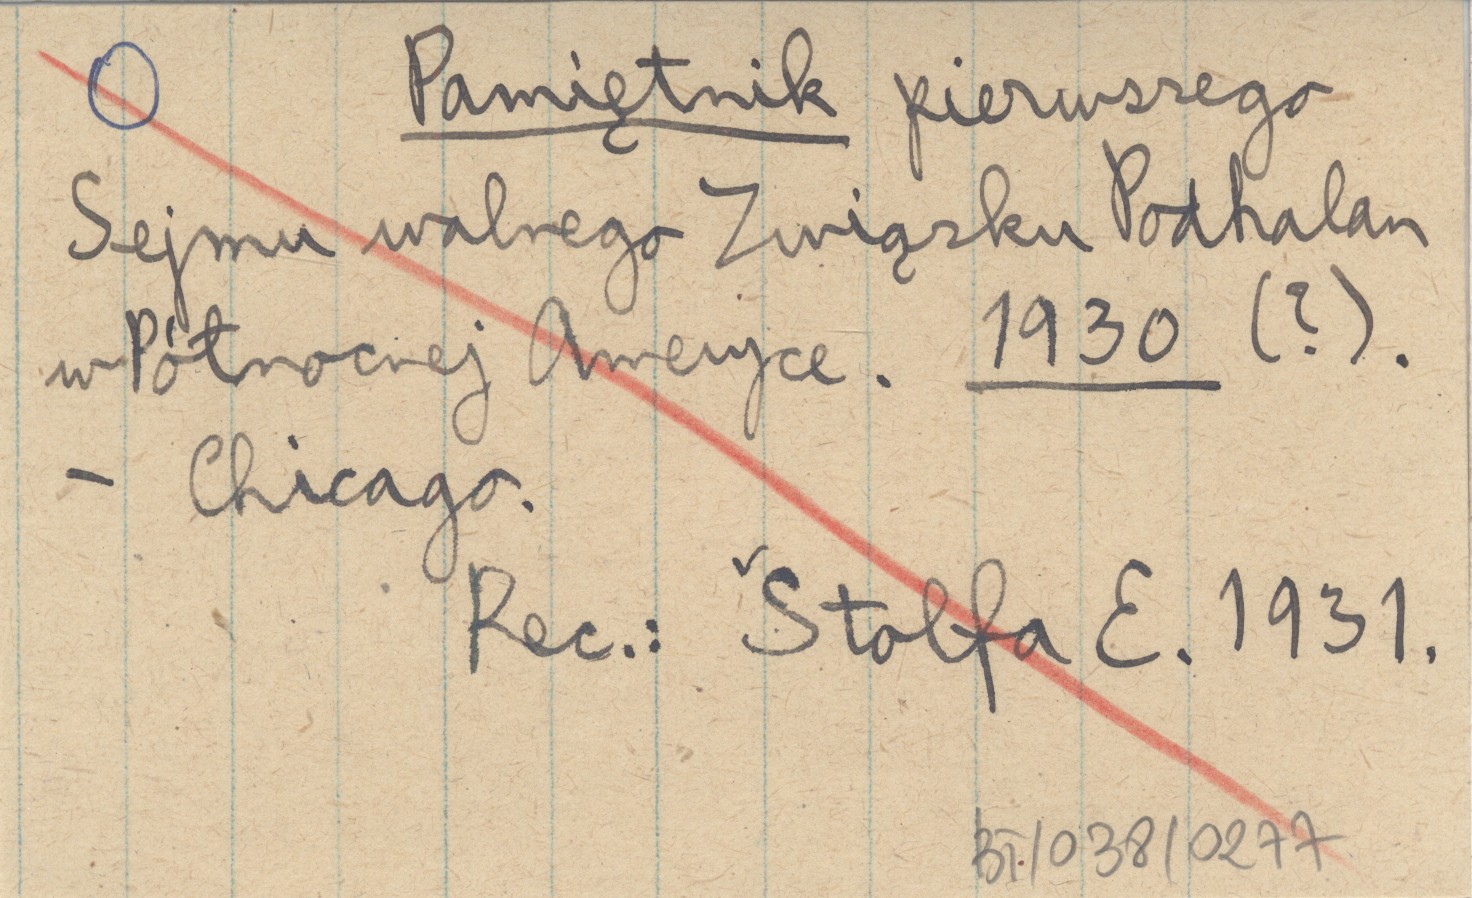 Pamiętnik pierwszego
Sejmu walnego Związku Podhalan
w Północnej Ameryce. 1930 (?).
- Chicago.
Rec.: Štolfa E. 1931.
BI/038/0277